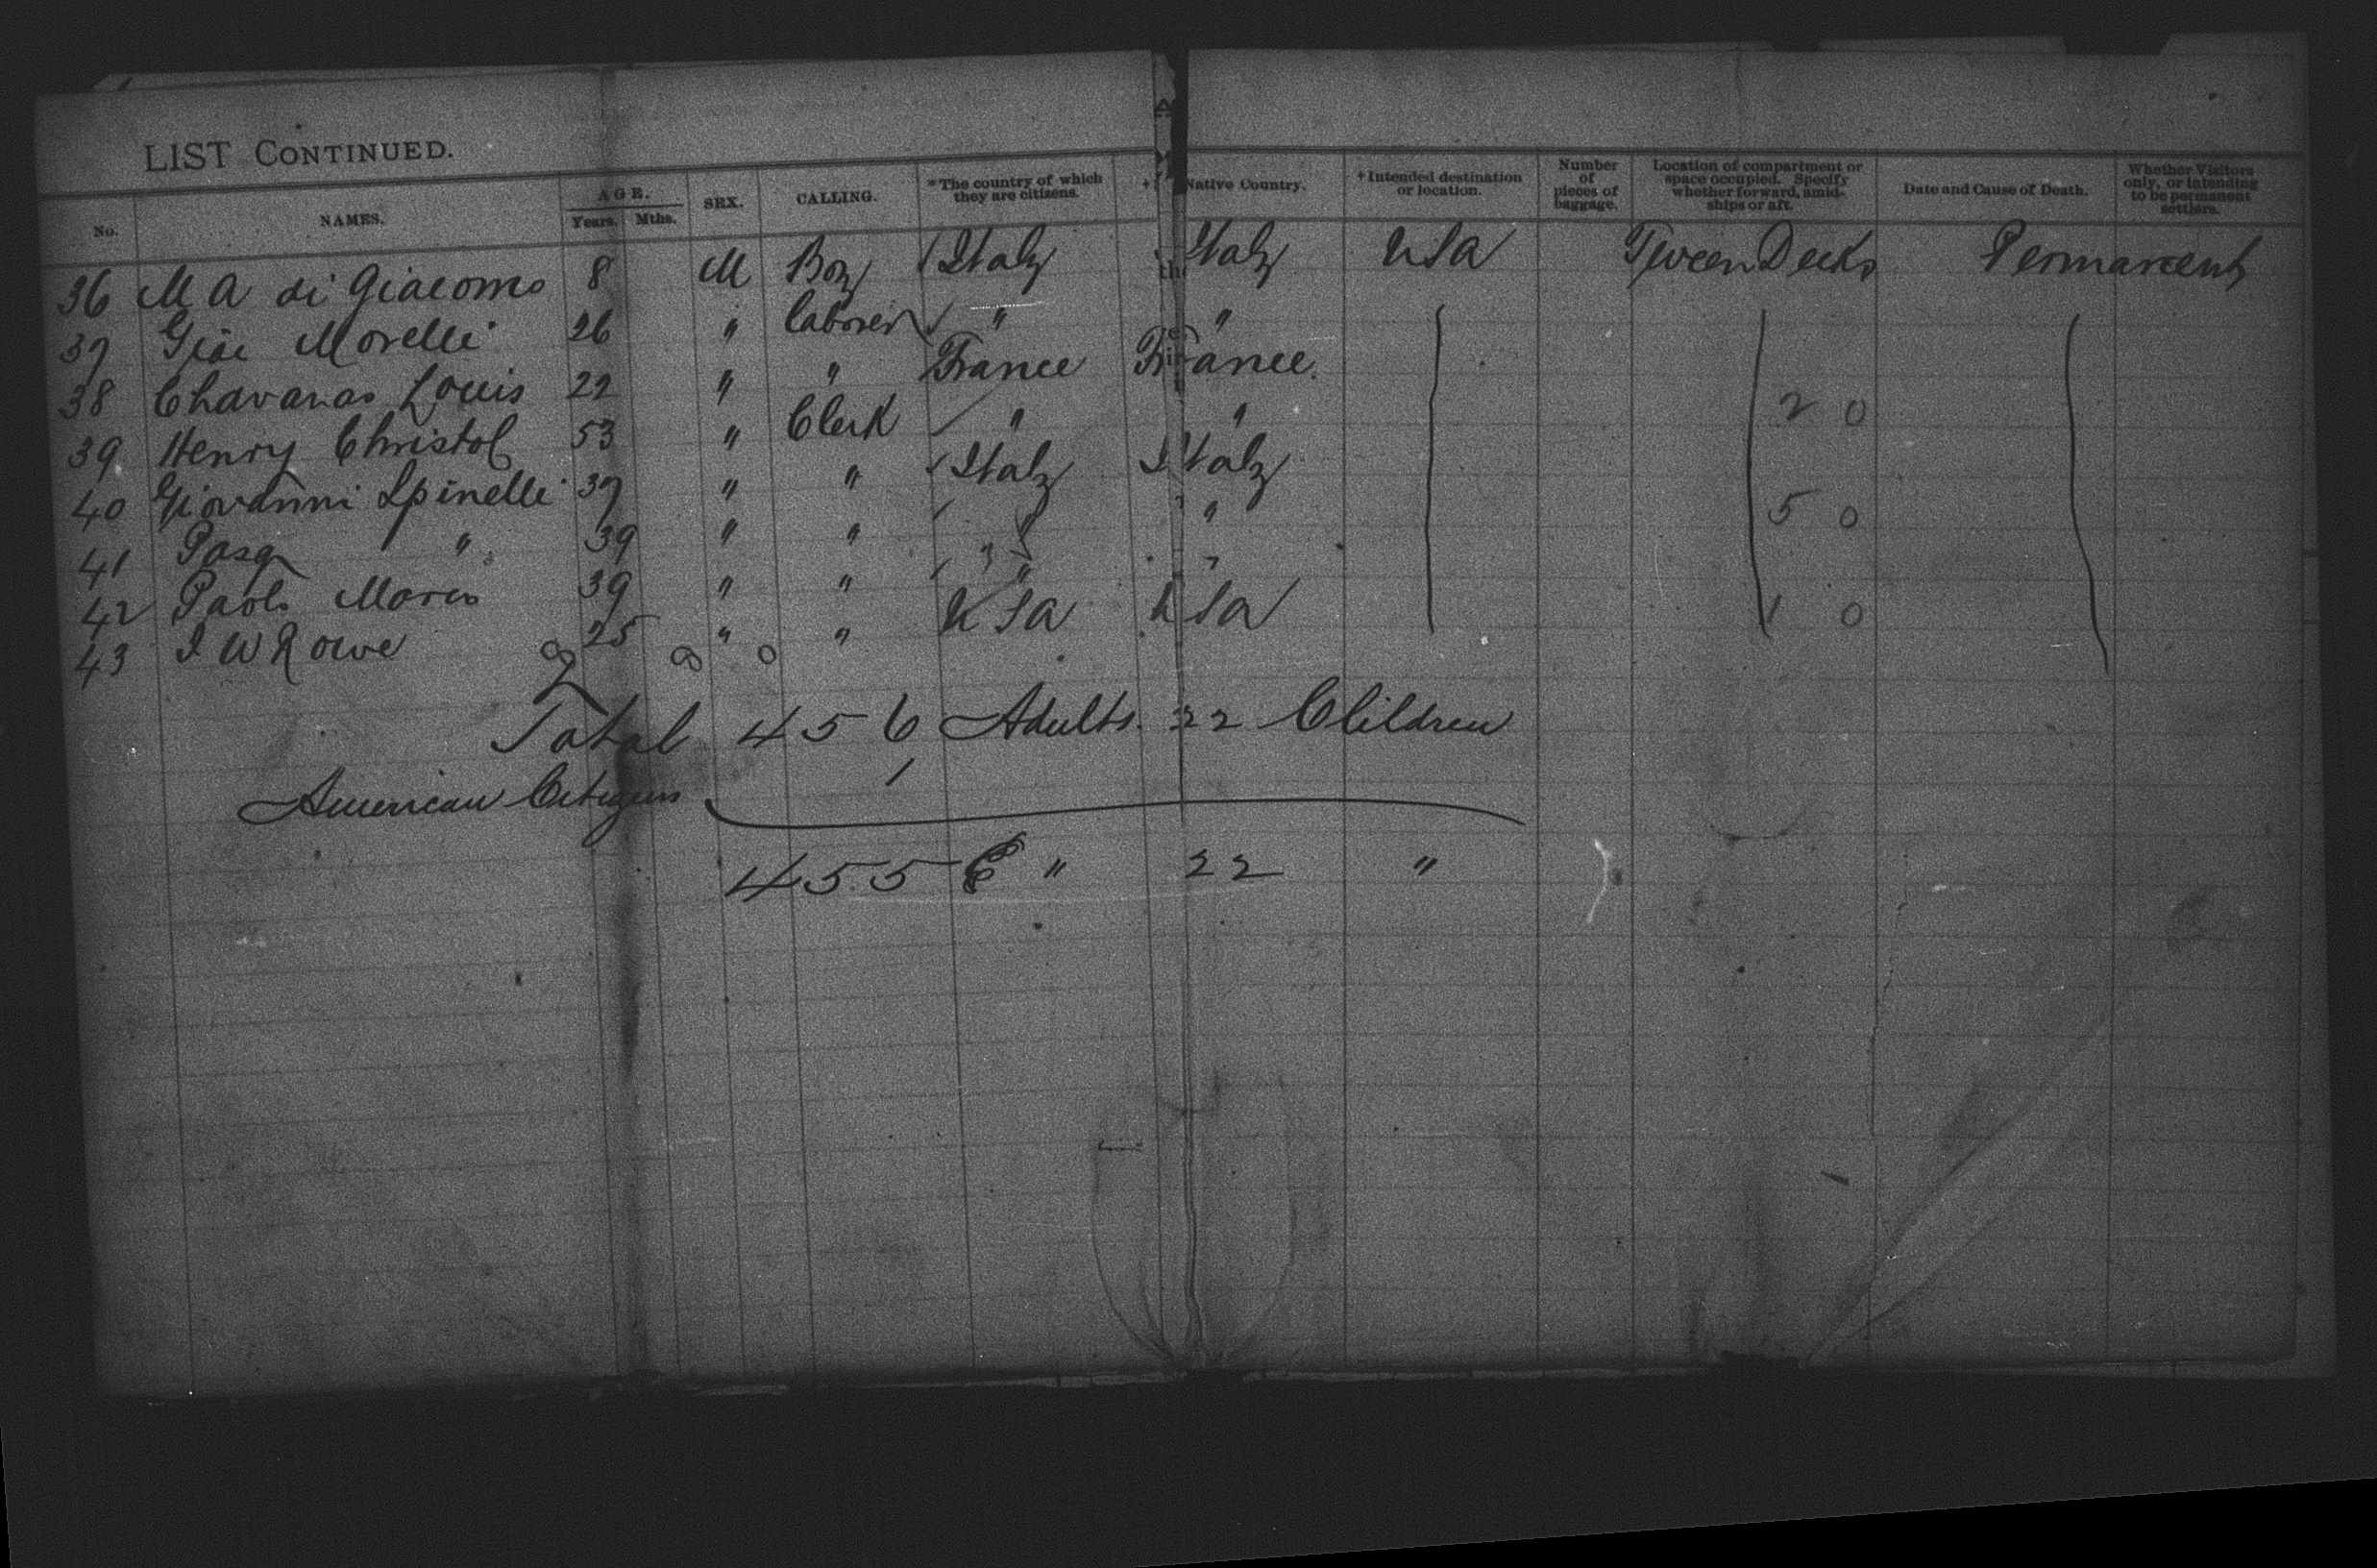 LIST CONTINUED.
No. NAMES. AGE. Years. Mths. SEX. CALLING. *The country of which they are citizens. Native Country. +Intended destination or location. Number of pieces of baggage. Location of compartment or space occupied. Specify whether forward, amidships or aft. Date and Cause of Death. Whether Visitors only, or intending to be permanent settlers.
36 M A di Giacomo 8 M Boy Italy Italy USA Tween Decks Permanent
37 Morelli 26 " Laborer " "
38 Chavanas Louis 22 " " France France 2 0
39 Henry Christol 53 " Clerk " "
40 Giovanni Spinelli 37 " " Italy Italy 5 0
41 Pasq " 39 " " " "
42 Paolo 39 " " " "
43 J W Rowe 25 " " USA USA 1 0
Total 456 Adults. 22 Children
American Citizens 1
455 " 22 "